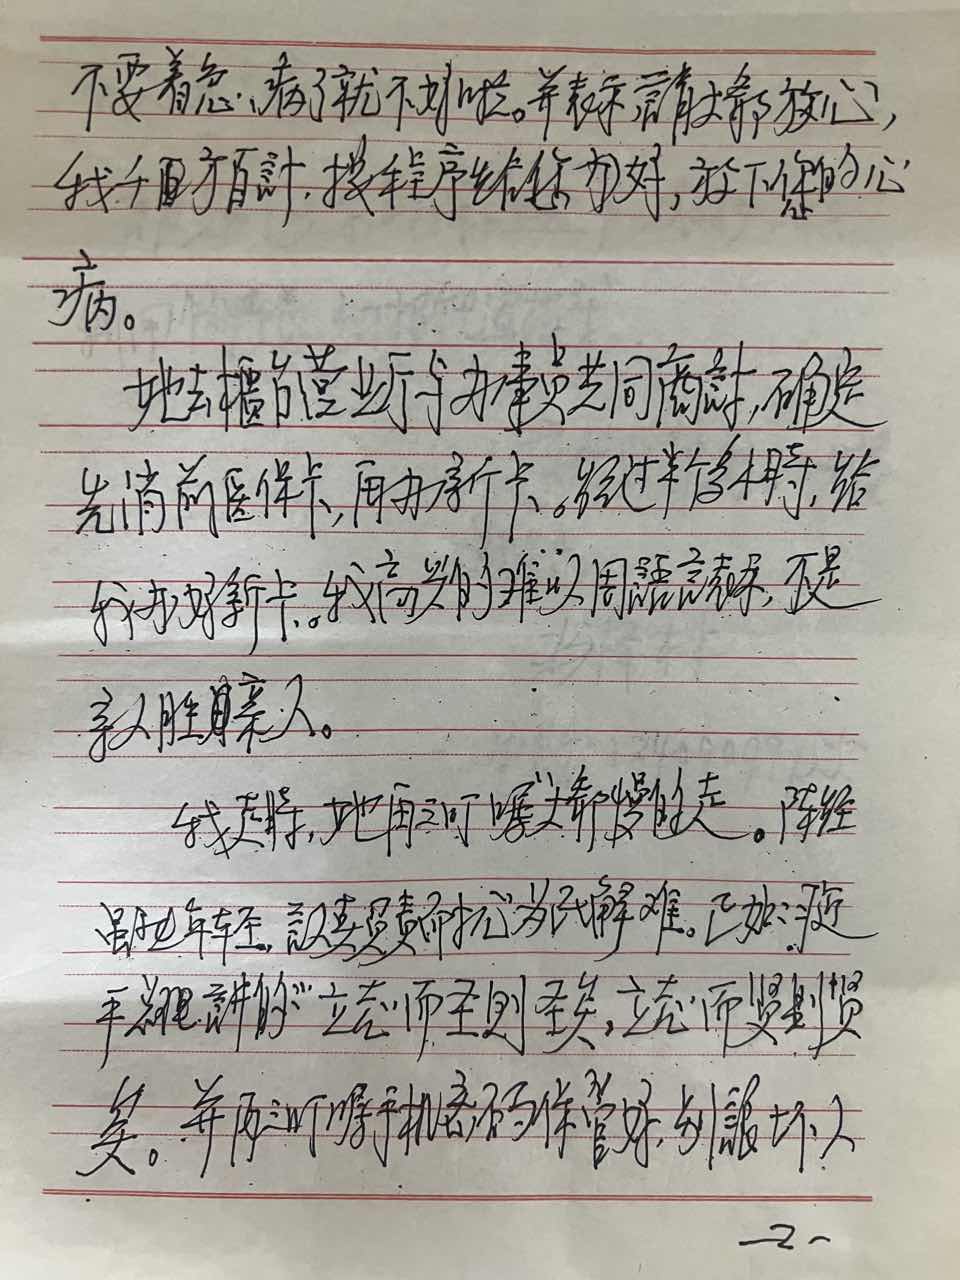 不要着急、病了就不好啦。并表示請大爺放心,
我千方百計,按程序给您办好,放下您的心
病。
她去櫃台营业厅与办事员共同商討,确定
先消前医保卡,再办新卡。经过半個小時,给
我办好新卡。我高兴的难以用語言表示,不是
亲人胜親人。
我走時,她再三叮嘱大爺慢的走。陈经
虽她年轻,認真負責而扰心为民解难。正如近
平総書記講的"立志而圣則圣矣,立志而贤則贤
矣。并再三叮嘱手机密码保管好,别讓坏人
—2-